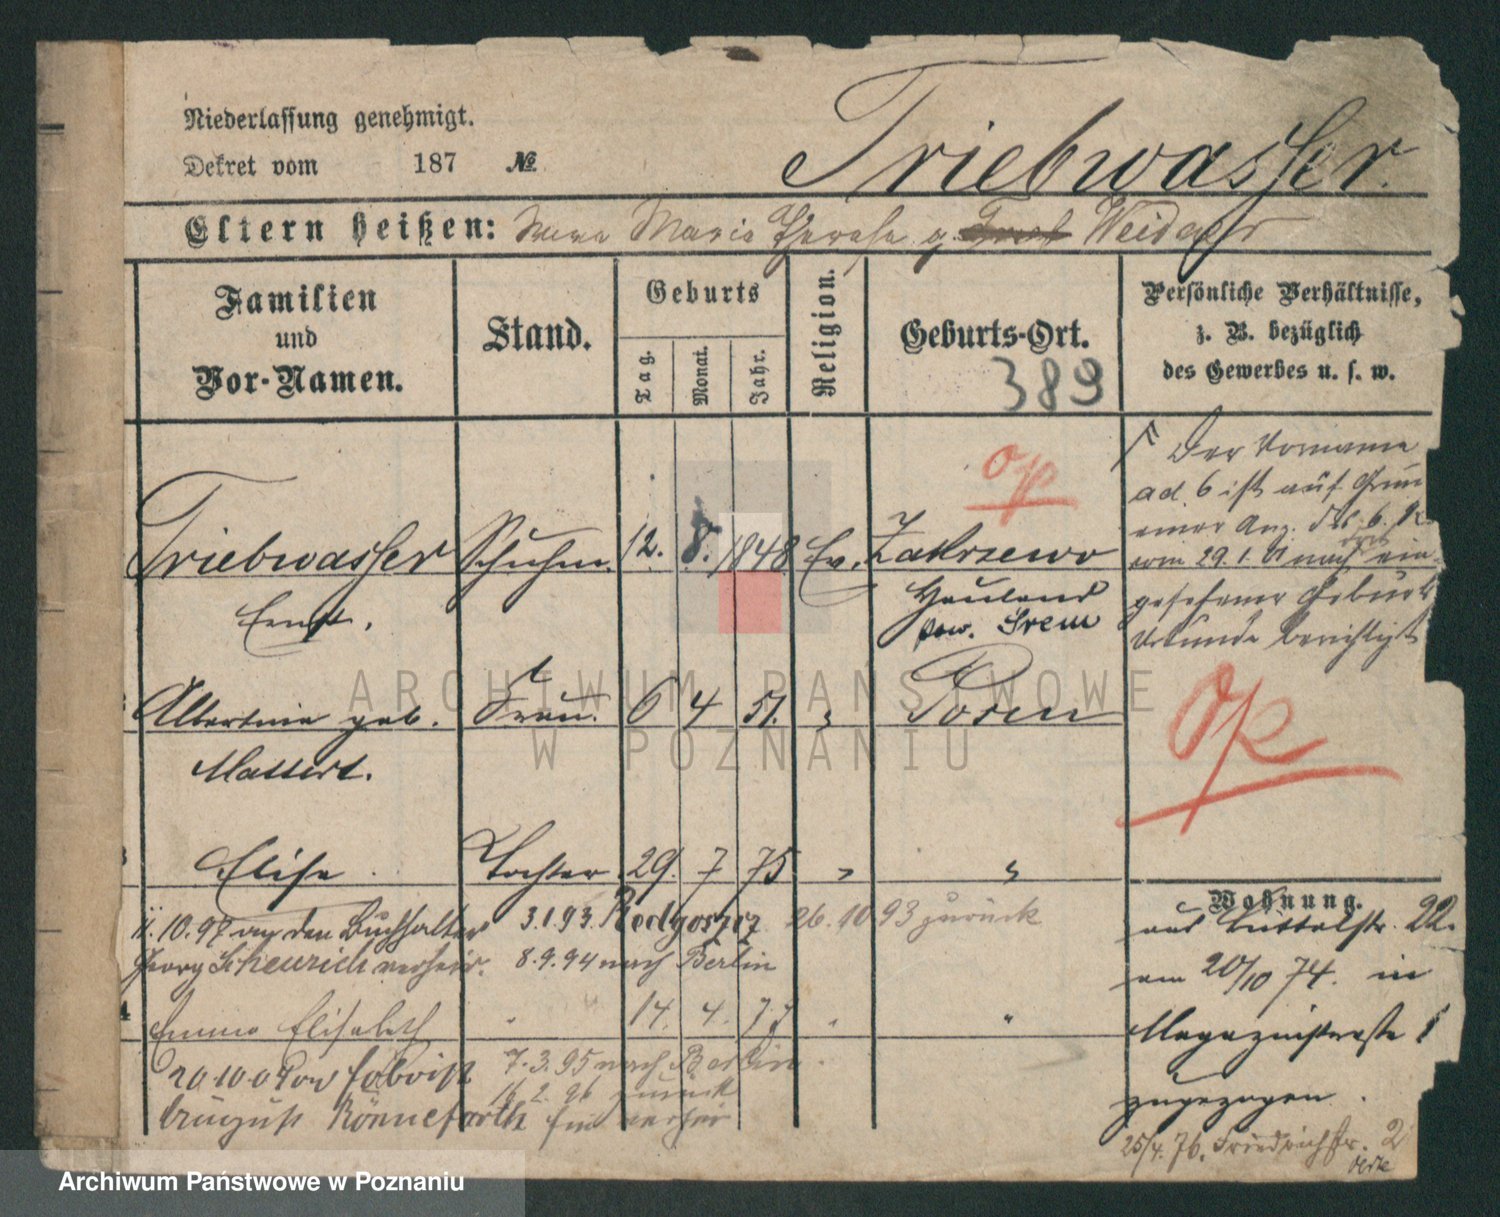 Niederlassung genehmigt.
Triebwasser.
Dekret vom 187 №
Eltern heißen: Maria Therese g. Weidner
Familien
und
Vor-Namen.
Stand.
Geburts
Tag.
Monat.
Jahr.
Religion.
Geburts-Ort.
389
Persönliche Verhältnisse,
z. B. bezüglich
des Gewerbes u. s. w.
Der Vorname
ad. 6 ist auf Grun
einer Anz. des
vom 29.1. nach ein-
gesehener Geburts
Urkunde berichtigt
op
Triebwasser Schuhm. 12. 8. 1848 Ev. Zakrzewo
Ernst.
Hauland
pow. Śrem
Albertine geb. Frau. 6 4 51. " Posen
Mattert.
op
3 Elise Tochter 29. 7 75 " "
11.10.97 an den Buchhalter 3.1.93. Redgoszcz 26.10.93 zurück
Georg Scheurich verheir. 8.9.94 nach Berlin
4 Emma Elisabeth " 14. 4. 77 " "
20.10.0 von
August Rönnefarth
7.3.95 nach Berlin.
16.2.96 zurück
Wohnung.
aus Büttelstr. 22.
am 20/10 74. in
Magazinstrasse 1
zugezogen.
25/4. 76. Friedrichstr. 2
ARCHIWUM PAŃSTWOWE
W POZNANIU
Archiwum Państwowe w Poznaniu